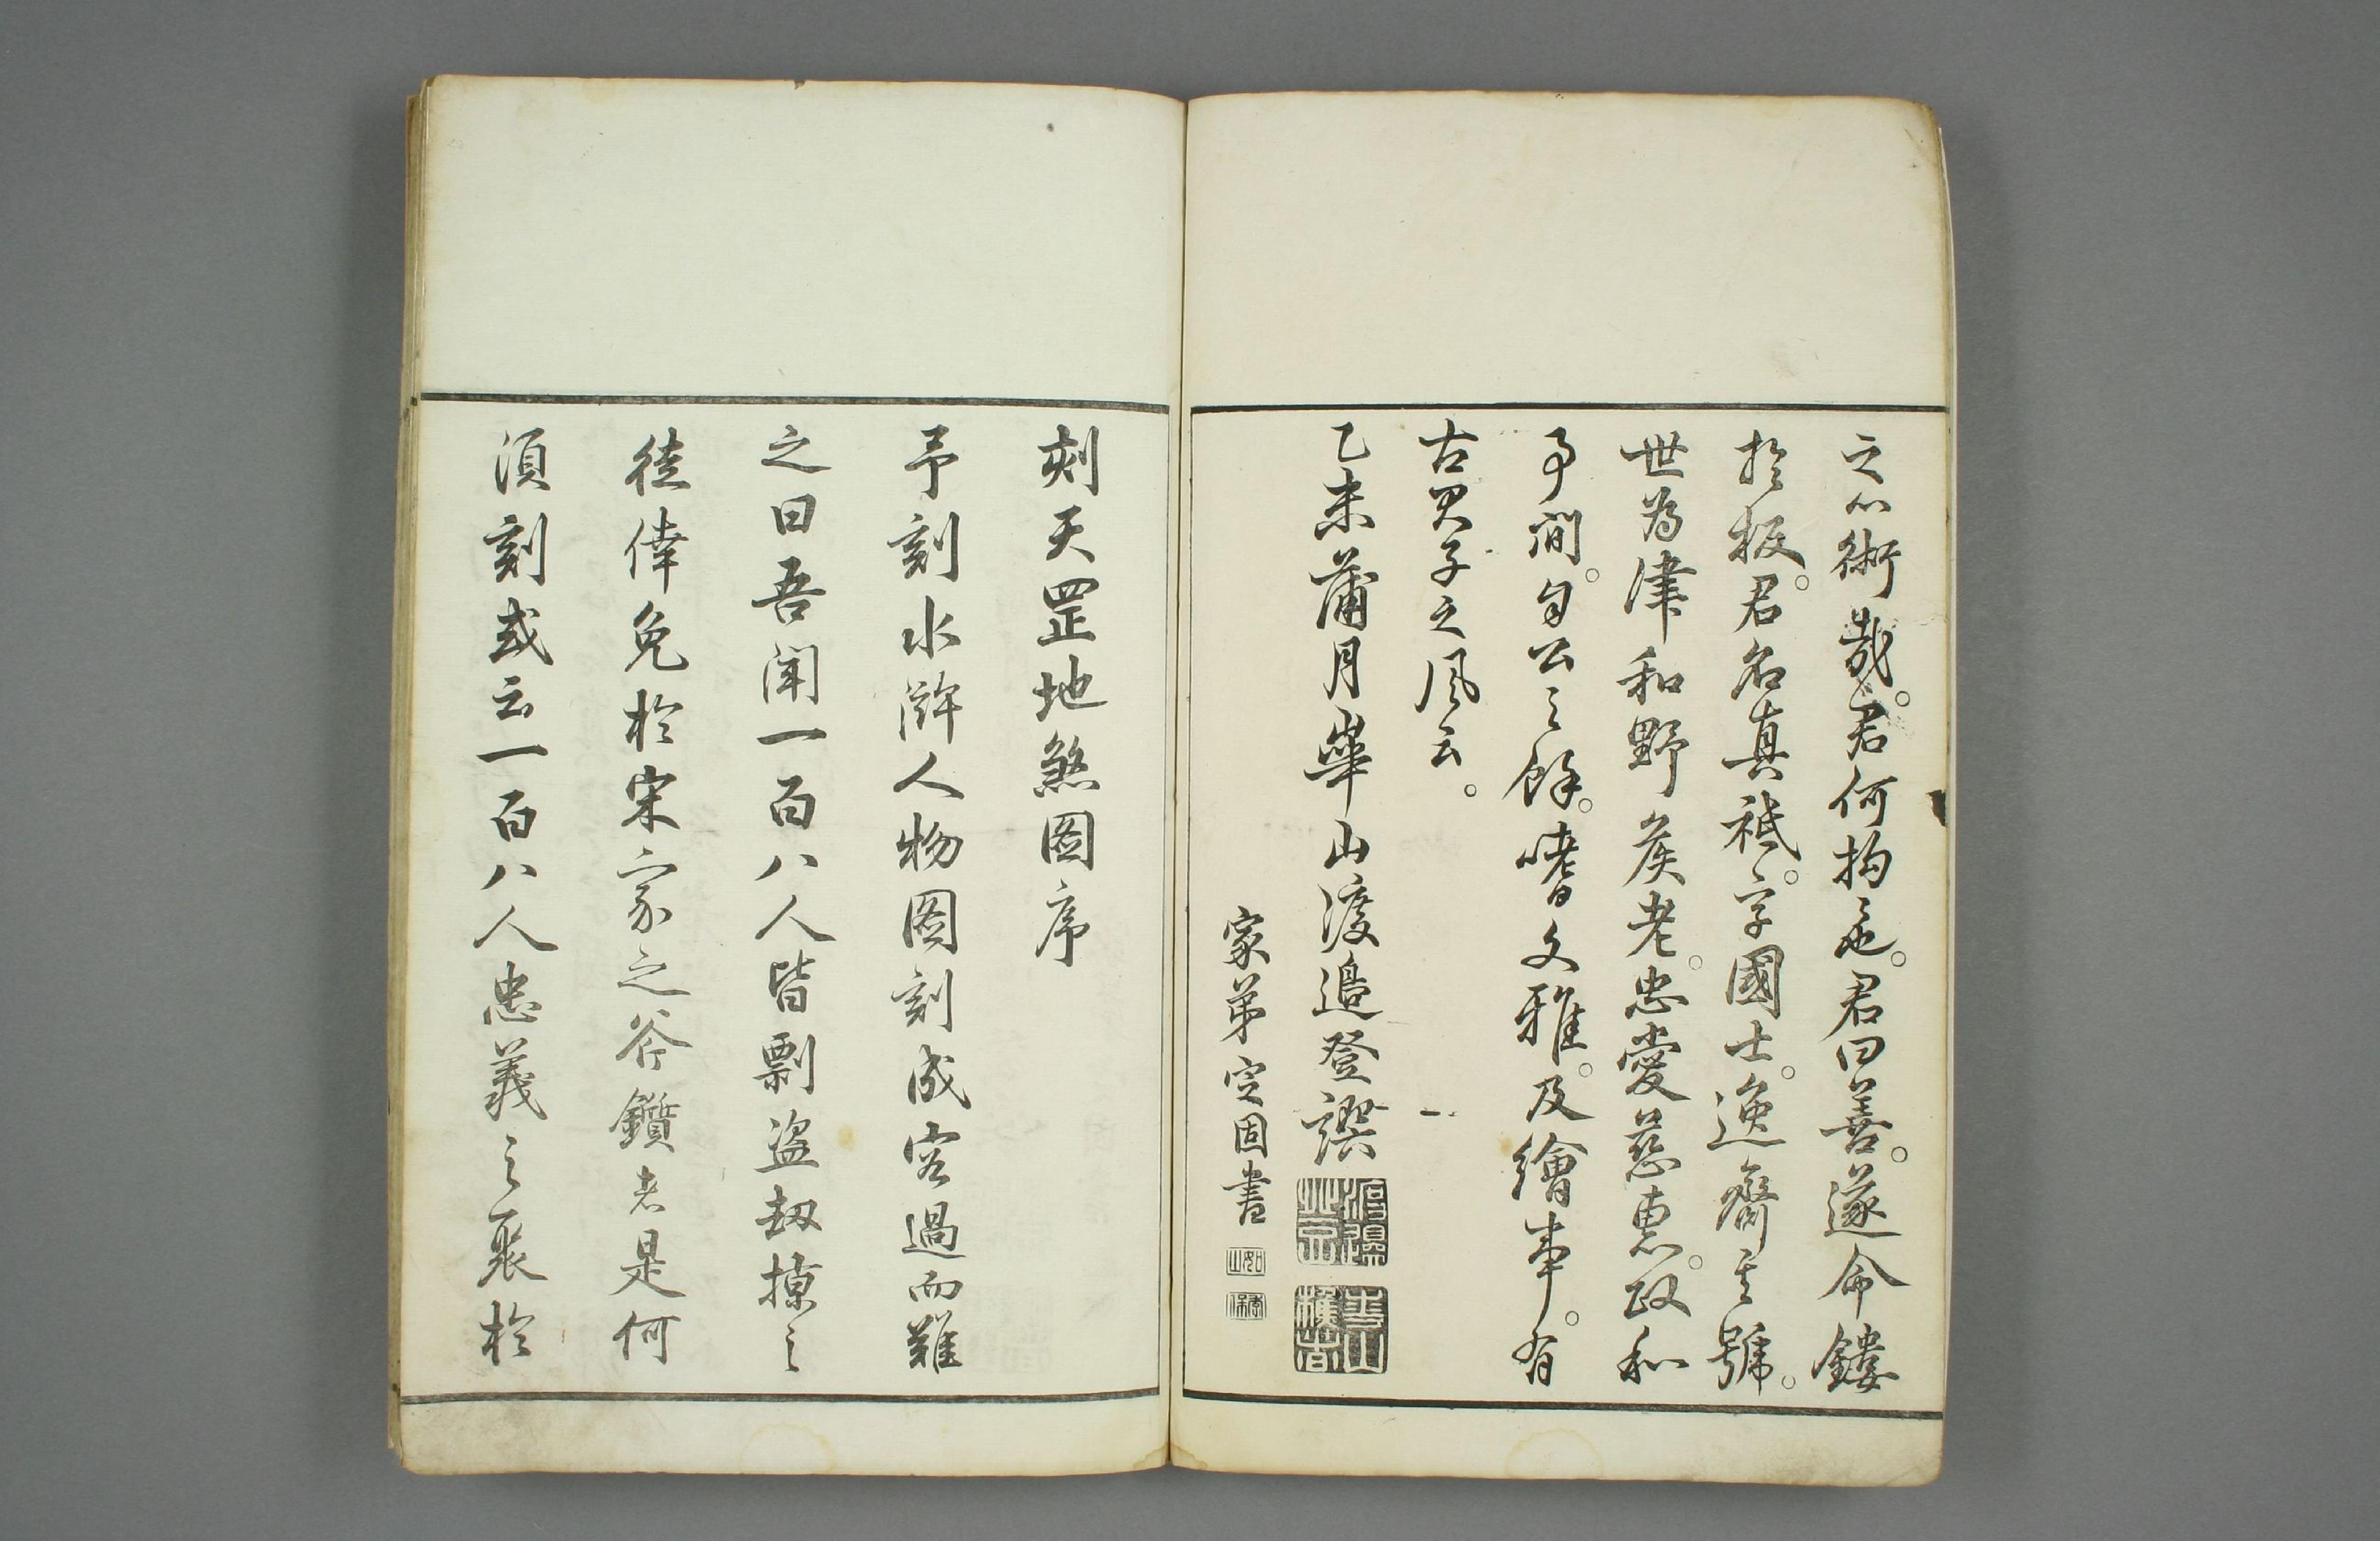 之心術哉。君何拘〻也。君曰善。遂命鏤
於板。君名真祗。字國士。逸齋其號。
世為津和野矦老。忠愛慈恵。政和
事閒。自公之餘。嗜文雅。及繪事。有
古君子之風云。
乙未蒲月崋山渡邉登譔
家弟定固書
如山
刻天罡地煞图序
予刻水滸人物图刻成客過而難
之曰吾聞一百八人皆剽盗劫掠之
徒倖免於宋家之斧鑕者是何
須刻或云一百八人忠義之聚於